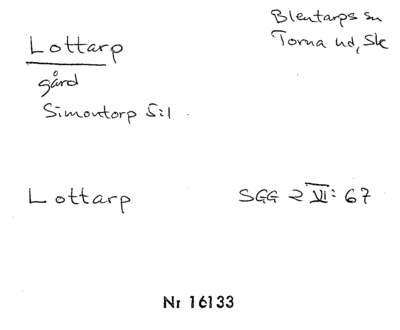 Lottarp
Blentarps sn
Torna hd, Sk
gård
Simontorp 5:1
Lottarp
SGG 2 VI: 67
Nr 16133